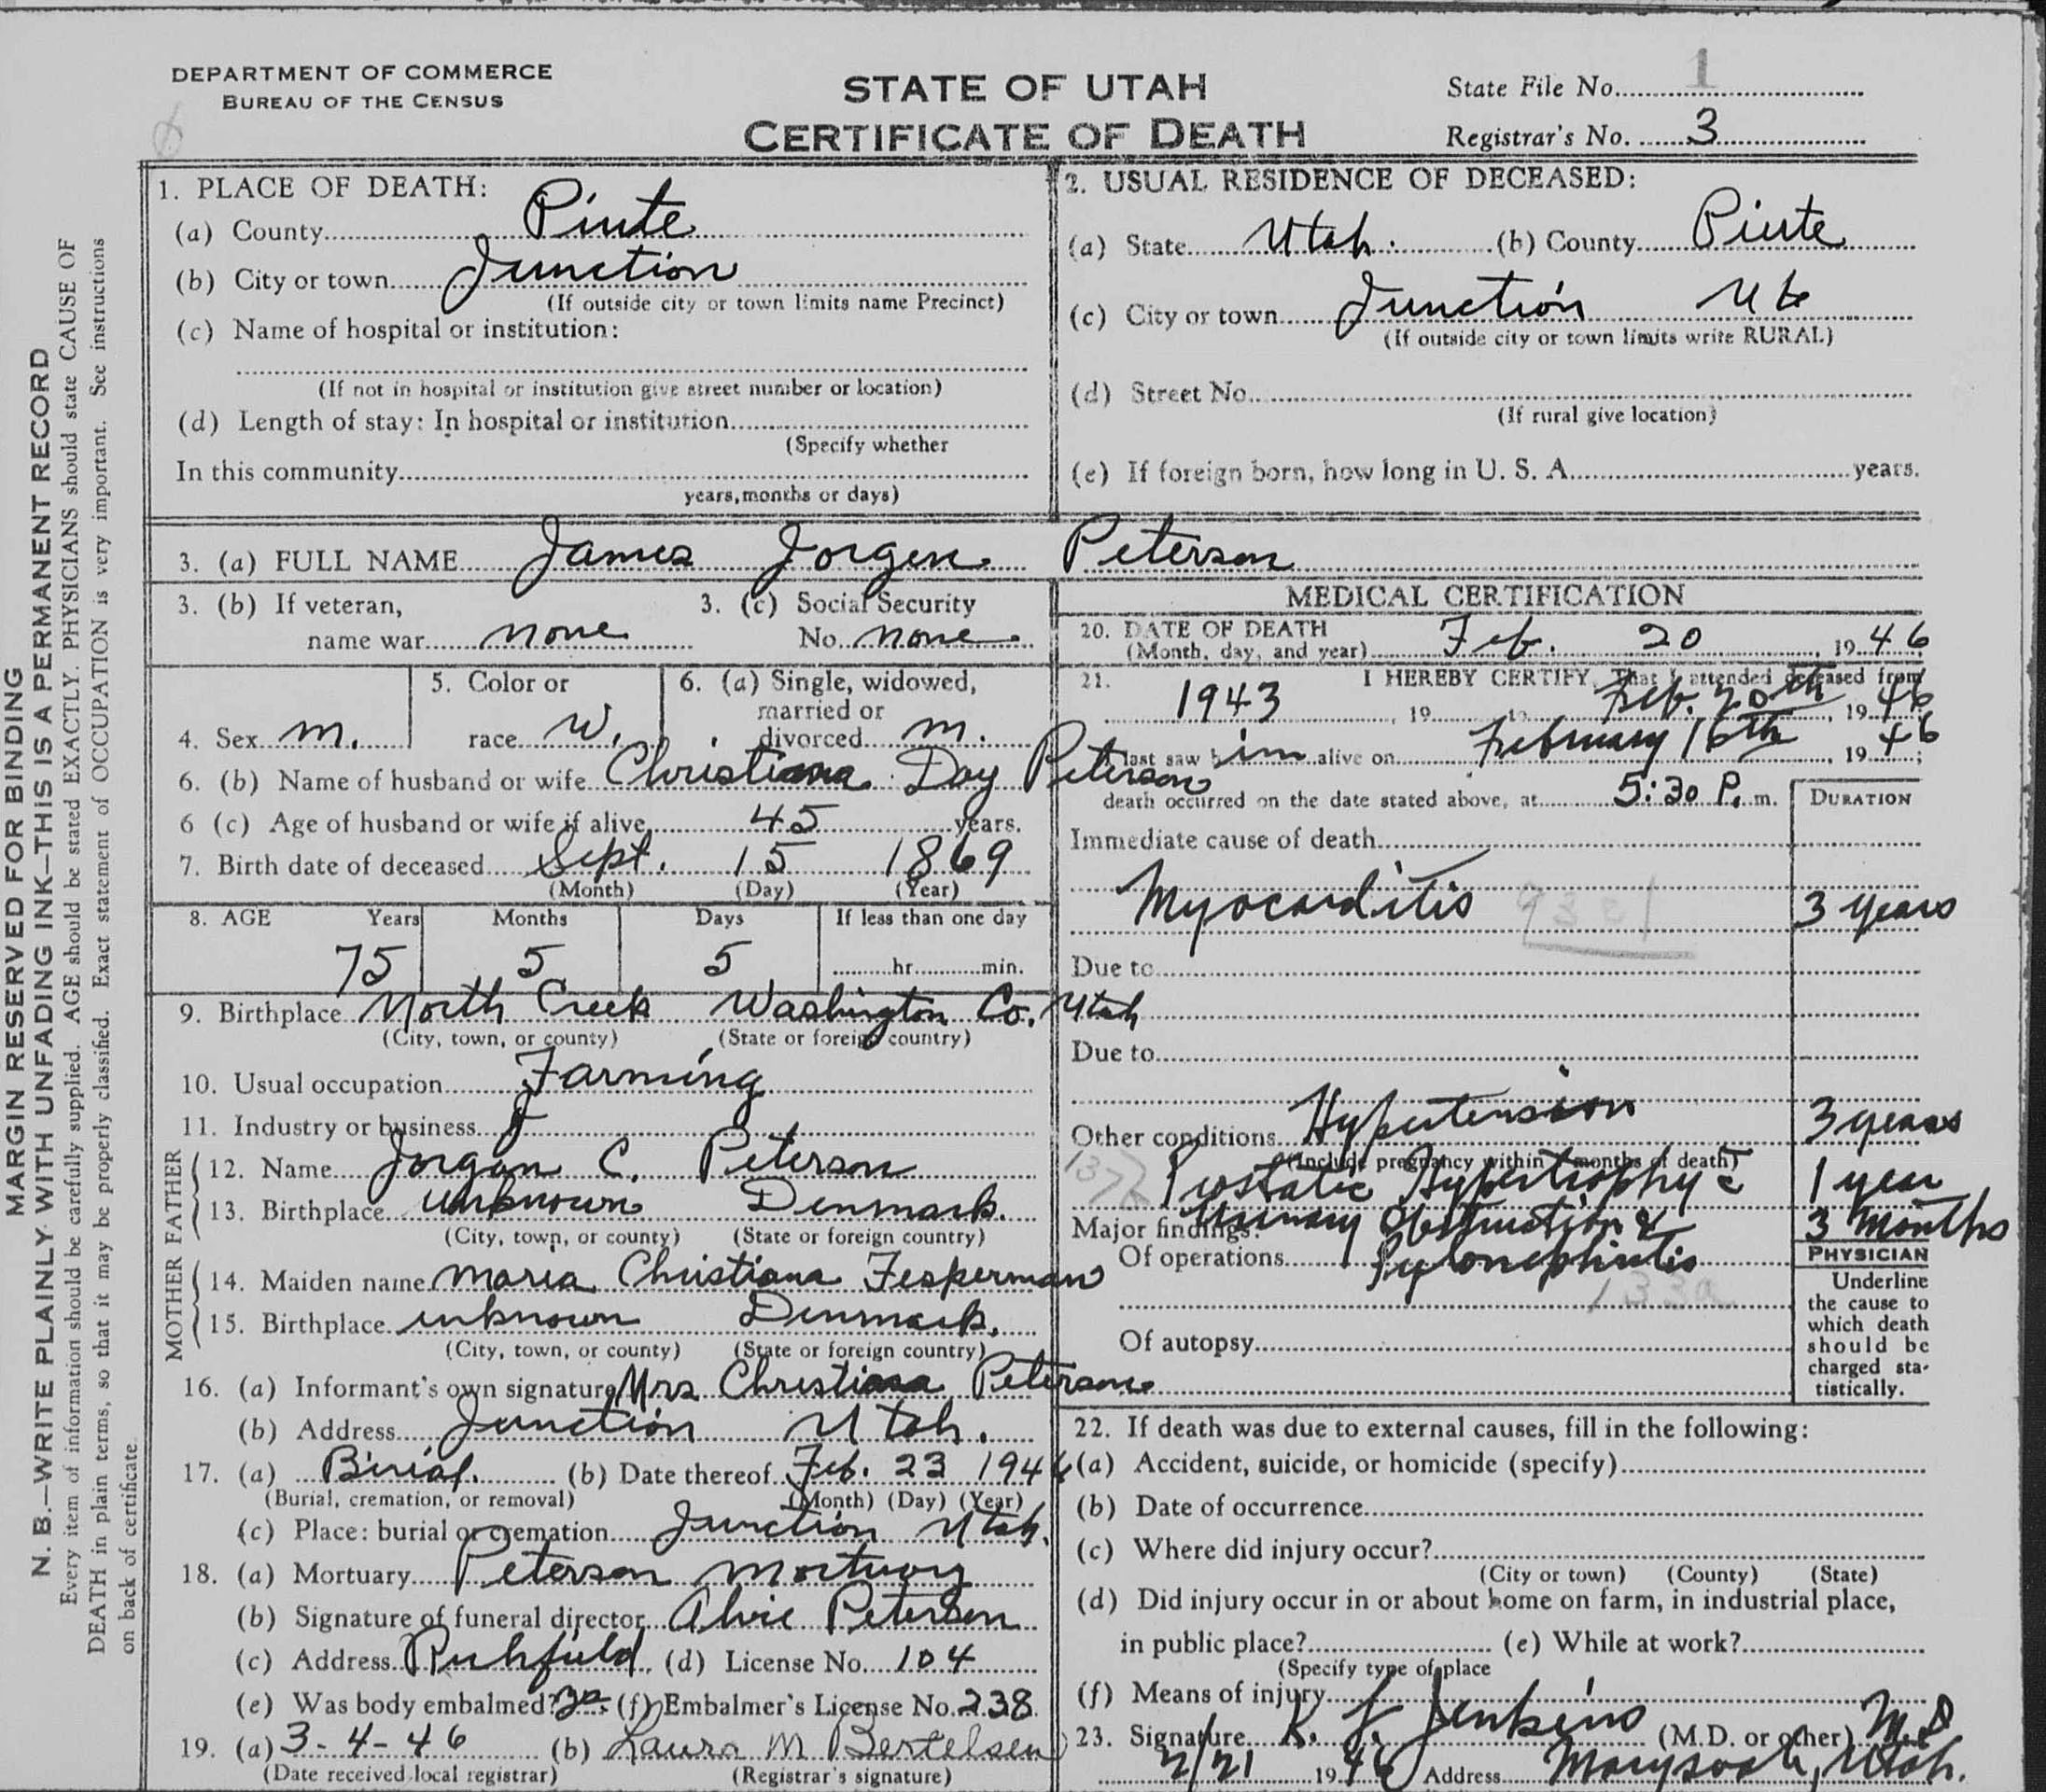 DEPARTMENT OF COMMERCE
BUREAU OF THE CENSUS
STATE OF UTAH
CERTIFICATE OF DEATH
State File No. 1
Registrar's No. 3
MARGIN RESERVED FOR BINDING
N. B.—WRITE PLAINLY WITH UNFADING INK—THIS IS A PERMANENT RECORD
Every item of information should be carefully supplied. AGE should be stated EXACTLY. PHYSICIANS should state CAUSE OF
DEATH in plain terms, so that it may be properly classified. Exact statement of OCCUPATION is very important. See instructions
on back of certificate.
1. PLACE OF DEATH:
(a) County Piute
(b) City or town Junction
(If outside city or town limits name Precinct)
(c) Name of hospital or institution:
(If not in hospital or institution give street number or location)
(d) Length of stay: In hospital or institution
(Specify whether
In this community
years, months or days)
2. USUAL RESIDENCE OF DECEASED:
(a) State Utah. (b) County Piute
(c) City or town Junction Ut
(If outside city or town limits write RURAL)
(d) Street No.
(If rural give location)
(e) If foreign born, how long in U. S. A. years.
3. (a) FULL NAME James Jorgen Peterson
3. (b) If veteran,
name war none
3. (c) Social Security
No. none
4. Sex m.
5. Color or
race W.
6. (a) Single, widowed,
married or
divorced m.
6. (b) Name of husband or wife Christiana Day Peterson
6 (c) Age of husband or wife if alive 45 years.
7. Birth date of deceased Sept. 15 1869
(Month) (Day) (Year)
8. AGE Years Months Days If less than one day
75 5 5 hr. min.
9. Birthplace North Creek Washington Co. Utah
(City, town, or county) (State or foreign country)
10. Usual occupation Farming
11. Industry or business
FATHER
12. Name Jorgan C. Peterson
13. Birthplace unknown Denmark.
(City, town, or county) (State or foreign country)
MOTHER
14. Maiden name Maria Christiana Fesperman
15. Birthplace unknown Denmark.
(City, town, or county) (State or foreign country)
16. (a) Informant's own signature Mrs Christiana Peterson
(b) Address Junction Utah.
17. (a) Birial. (b) Date thereof Feb. 23 1946
(Burial, cremation, or removal) (Month) (Day) (Year)
(c) Place: burial or cremation Junction Utah.
18. (a) Mortuary Peterson Mortuary
(b) Signature of funeral director Alvie Peterson
(c) Address Richfield (d) License No. 104
(e) Was body embalmed? (f) Embalmer's License No. 238
19. (a) 3-4-46 (b) Laura M Bertelsen
(Date received local registrar) (Registrar's signature)
MEDICAL CERTIFICATION
20. DATE OF DEATH
(Month, day, and year) Feb. 20, 1946
21. I HEREBY CERTIFY, That I attended deceased from
1943, 19 to Feb. 20th, 1946
I last saw him alive on February 16th, 1946;
death occurred on the date stated above, at 5:30 P. m.
DURATION
Immediate cause of death
Myocarditis 3 years
Due to
Due to
Other conditions Hypertension 3 years
(Include pregnancy within months of death)
Prostatic Hypertrophy c 1 year
Major findings: Urinary Obstruction & 3 Months
Of operations Pylonephritis
133a
Of autopsy
PHYSICIAN
Underline
the cause to
which death
should be
charged sta-
tistically.
22. If death was due to external causes, fill in the following:
(a) Accident, suicide, or homicide (specify)
(b) Date of occurrence
(c) Where did injury occur?
(City or town) (County) (State)
(d) Did injury occur in or about home on farm, in industrial place,
in public place? (e) While at work?
(Specify type of place
(f) Means of injury
23. Signature Jenkins (M.D. or other) M.D
2/21 1946 Address Marysvale, Utah.